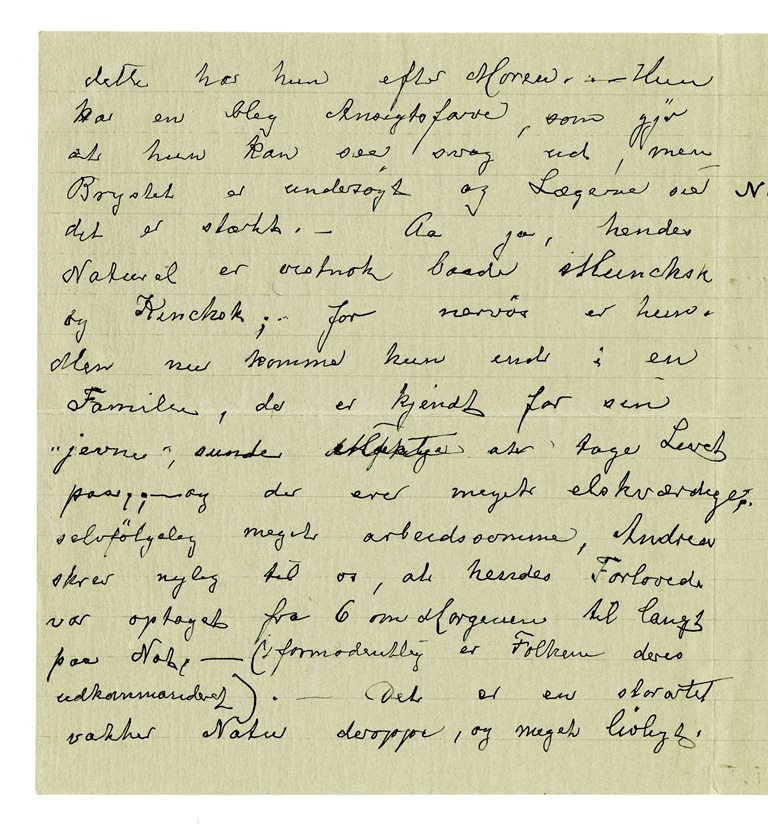 dette har hun efter Moren. – Hun
har en bleg Ansigtsfarve, som gjör
at hun kan see svag ud, men
Brystet er undersögt og Lægerne sier
det er stærkt. – Aa ja, hendes
Naturel er vistnok baade Munchsk
og Kincksk; – for nervös er hun.
Men nu komme hun ind i en
Familie, der er kjendt for sin
"jevne", sunde at tage Livet
paa; – og der ere meget elskværdige,
selvfölgelig meget arbeidssomme, Andrea
skrev nylig til os, at hendes Forlovede
var optaget fra 6 om Morgenen til langt
paa Nat, – (formodentlig er Folkene deres
udkommanderet). – Det er en storartet
vakker Natur deroppe, og meget livligt.
N